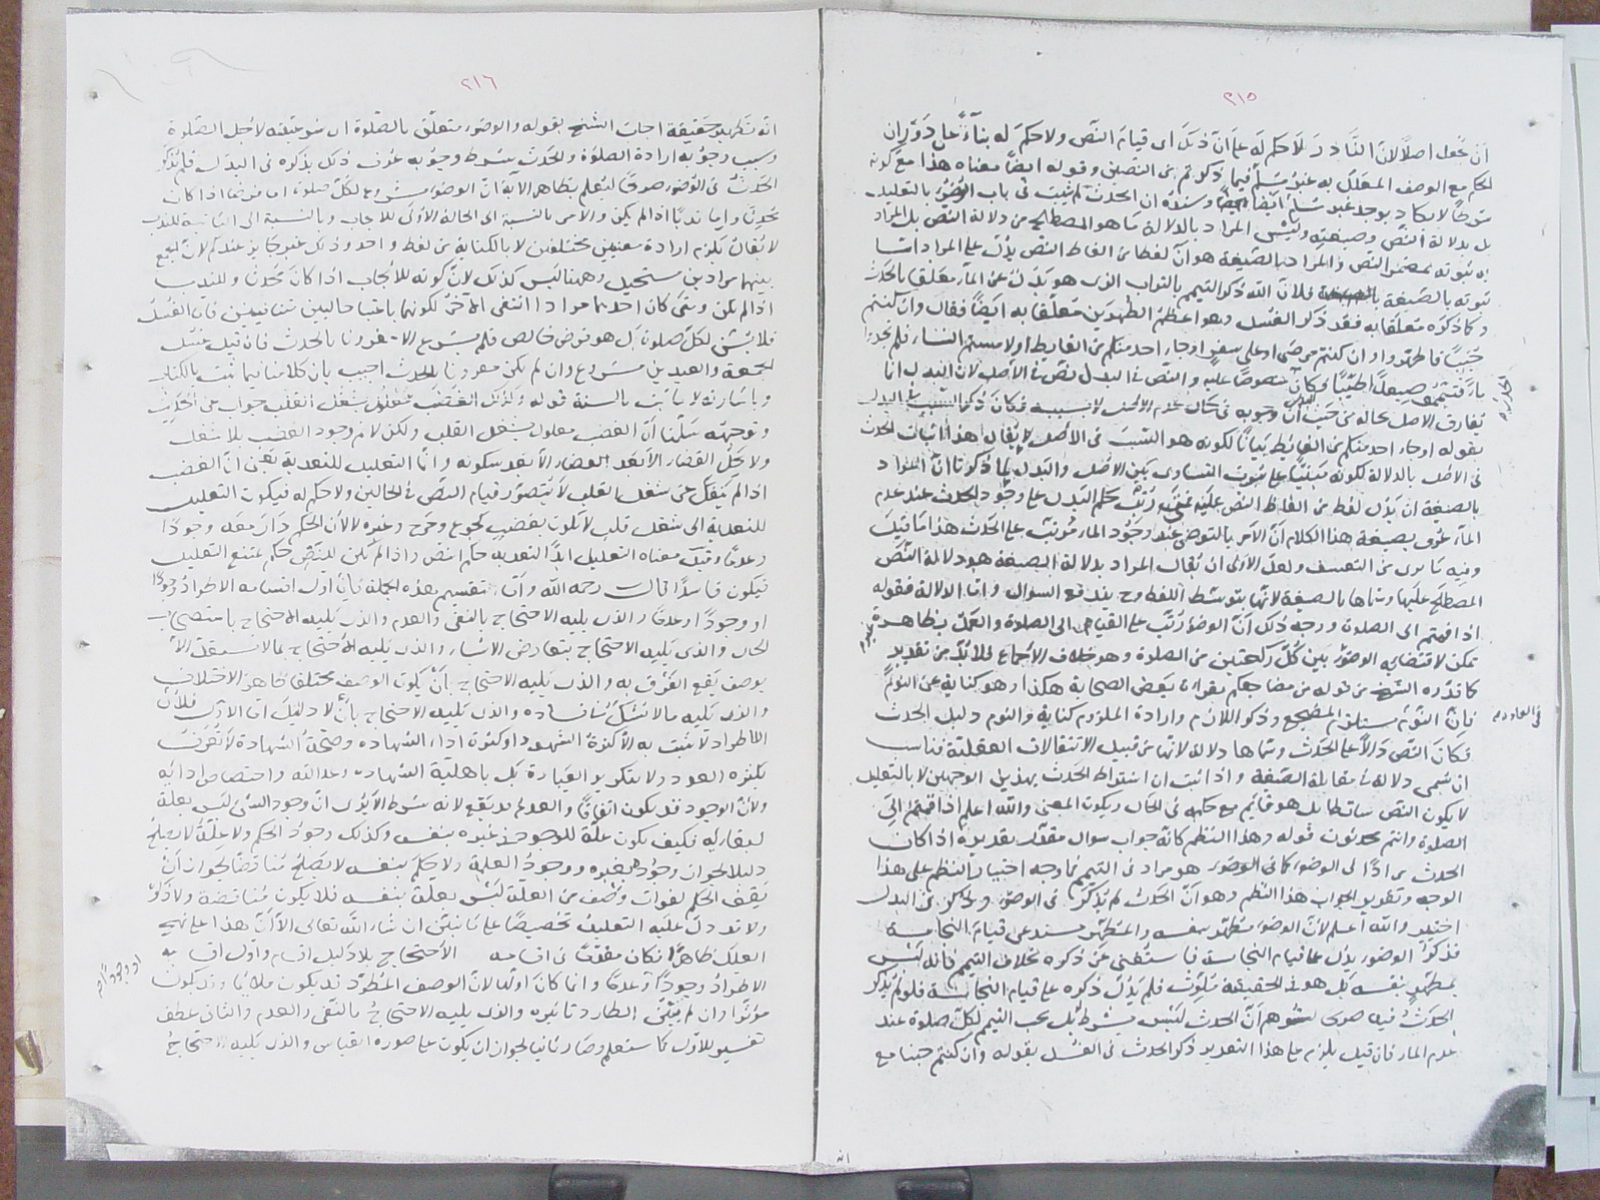 ٣١٥
أن نجعل أصلا لأن النادر لا حكم له على أن ذلك أي قيام النص ولا حكم له بناء على دوران
الحكم مع الوصف المعلل به غير مسلم فيما ذكرتم من النصين وقوله أيضا معناه هذا مع كونه
شرطا لا يكاد يوجد غير مسلم أيضا وسنده أن الحدث لم يثبت في باب الوضوء بالتعليل
بل بدلالة النص وصيغته وليس المراد بالدلالة ما هو المصطلح من دلالة النص بل المراد
به ثبوته بمضمر النص والمراد بالصيغة هو أن لفظا من ألفاظ النص يدل على المراد أما
ثبوته بالصيغة فلأن الله ذكر التيمم بالتراب الذي هو بدل عن الماء معلقا بالحدث
وكما ذكره متعلقا به فقد ذكر الغسل وهو أعظم الطهرين متعلقا به أيضا فقال وإن كنتم
جنبا فاطهروا وإن كنتم مرضى أو على سفر أو جاء أحد منكم من الغائط أو لامستم النساء فلم تجدوا
ماء فتيمموا صعيدا طيبا كان منصوصا عليه والنص في البدل نص في الأصل لأن البدل إنما
يفارق الأصل بحاله من حيث أن وجوبه في حال عدم الأصل لا بسببه فكان ذكر السبب في البدل
بقوله أو جاء أحد منكم من الغائط بيانا لكونه هو السبب في الأصل لا يقال هذا إثبات الحدث
في الأصل بالدلالة لكونه مبنيا على ثبوت التساوي بين الأصل والبدل لما ذكرنا أن المراد
بالصيغة أن يدل لفظ من ألفاظ النص عليه فمتى رتب حكم البدل على وجود الحدث عند عدم
الماء عرف بصيغة هذا الكلام أن الأمر بالتوضي عند وجود الماء مرتب على الحدث هذا ما قيل
وفيه ما ترى من التعسف ولعل الأولى أن يقال المراد بدلالة الصيغة هو دلالة النص
المصطلح عليها وسماها بالصيغة لأنها بتوسط اللفظ وح يندفع السؤال وأما الدلالة فقوله
إذا قمتم إلى الصلوة ووجه ذلك أن الوضوء رتب على القيام إلى الصلوة والعمل بظاهره
يمكن لاقتضائه الوضوء بين كل ركعتين من الصلوة وهو خلاف الإجماع فلا بد من تقدير
كما قدره الشيخ من قوله من مضاجعكم بقراءة بعض الصحابة هكذا وهو كناية عن النوم
فإن النوم يستلزم المضجع وذكر اللازم وإرادة الملزوم كناية والنوم دليل الحدث
فكان النص دالا على الحدث وسماها دلالة لأنها من قبيل الانتقالات العقلية فناسب
أن تسمى دلالة في مقابلة الصيغة وإذا ثبت أن اشتراط الحدث بهذين الوجهين لا بالتعليل
لا يكون النص ساقطا بل هو قائم مع حكمه في الحال ويكون المعنى والله أعلم إذا قمتم إلى
الصلوة وأنتم محدثون قوله وهذا النظم كأنه جواب سؤال مقدر تقديره إذا كان
الحدث مرادا في الوضوء كما في الوضوء هو مراد في التيمم فما وجه اختيار النظم على هذا
الوجه وتقرير الجواب هذا النظم وهو أن الحدث لم يذكر في الوضوء وذكر في البدل
اختير والله أعلم لأن الوضوء مطهر بنفسه والمطهر يستدعي قيام النجاسة
فذكر الوضوء يدل على قيام النجاسة فاستغنى عن ذكره بخلاف التيمم فإنه ليس
بمطهر بنفسه بل هو في الحقيقة ملوث فلم يدل ذكره على قيام النجاسة فلو لم يذكر
الحدث فيه صريحا لتوهم أن الحدث ليس بشرط بل يجب التيمم لكل صلوة عند
عدم الماء فإن قيل يلزم على هذا التقدير ذكر الحدث في الغسل بقوله وإن كنتم جنبا مع
أنه
٣١٦
أنه تطهير حقيقة أجاب الشيخ بقوله والوضوء متعلق بالصلوة أي شرعيته لأجل الصلوة
وسبب وجوبه إرادة الصلوة والحدث شرط وجوبه عرف ذلك بذكره في البدل فلم يذكر
الحدث في الوضوء صريحا ليعلم بظاهر الآية أن الوضوء مشروع لكل صلوة إما فرضا إذا كان
محدثا وإما ندبا إذا لم يكن والأمر بالنسبة إلى الحالة الأولى للإيجاب وبالنسبة إلى الثانية للندب
لا يقال يلزم إرادة معنيين مختلفين لا بالكناية من لفظ واحد وذلك غير جائز عندكم لأن الجمع
بينهما مرادين مستحيل وههنا ليس كذلك لأن كونه للإيجاب إذا كان محدثا وللندب
إذا لم يكن ومتى كان أحدهما مرادا انتفى الآخر لكونهما باعتبار حالين متنافيين فأما الغسل
فلا يسن لكل صلوة بل هو فرض خالص فلم يشرع إلا مقرونا بالحدث فإن قيل غسل
الجمعة والعيدين مشروع وإن لم يكن مقرونا بالحدث أجيب بأن كلامنا فيما ثبت بالكتاب
وبإشارته لا بما ثبت بالسنة قوله وكذلك الغضب معلول بشغل القلب جواب عن الحديث
وتوجيهه سلمنا أن الغضب معلول بشغل القلب ولكن لا نم وجود الغضب بلا شغل
ولا يحل القضاء إلا بعد سكونه وإنما التعليل للتعدية يعني أن الغضب
إذا لم ينفك عن شغل القلب لا يتصور قيام النص في الحالين ولا حكم له فيكون التعليل
للتعدية إلى شغل قلب لا يكون بغضب كجوع وجرح وغيره لا لأن الحكم دار معه وجودا
وعدما وقيل معناه التعليل أبدا لتعدية حكم النص وإذا لم يكن للنص حكم يمتنع التعليل
فيكون فاسدا قال رحمه الله وإنما تقسيم هذه الجملة فإن أول أقسامه الاطراد وجودا
أو وجودا أو عدما والذي يليه الاحتجاج بالنفي والعدم والذي يليه الاحتجاج باستصحاب
الحال والذي يليه الاحتجاج بتعارض الأشباه والذي يليه الاحتجاج بما لا يستقل إلا
بوصف يقع الفرق به والذي يليه الاحتجاج بأن يكون الوصف مختلفا ظاهر الاختلاف
والذي يليه ما لا نشك في فساده والذي يليه الاحتجاج بأن لا دليل أما الأول فلأن
الاطراد لا يثبت به إلا كثرة الشهود أو كثرة أداء الشهادة وصحة الشهادة لا تعرف
بكثرة العدد ولا بتكرير العبارة بل بأهلية الشهادة وعدالته واختصاص أدائه
ولأن الوجود قد يكون اتفاقا والعدم قد يقع لأنه شرط ألا يرى أن وجود الشيء ليس بعلة
لبقائه فكيف يكون علة للوجود في غيره بنفسه وكذلك وجود الحكم ولا علة لا يصلح
دليلا لجواز وجوده بغيره ووجود العلة ولا حكم بنفسه لا يصلح مناقضا لجواز أن
يقف الحكم لفوات وصف من العلة ليس بعلة بنفسه فلا يكون مناقضة ولا
ولا تدل عليه التعليل تخصيصا على ما نبين إن شاء الله تعالى إلا أن هذا على نهج
العلل ظاهرا فكان مقدما في أقسامه الاحتجاج بلا دليل أقسام وأول أقسامه
الاطراد وجودا وعدما وإنما كان أولها لأن الوصف المطرد قد يكون ملائما وقد يكون
مؤثرا وإن لم يتبين الطارد تأثيره والذي يليه الاحتجاج بالنفي والعدم والثاني عطف
تفسير للأول كما ستعلم وصار ثانيا لجواز أن يكون على صورة القياس والذي يليه الاحتجاج